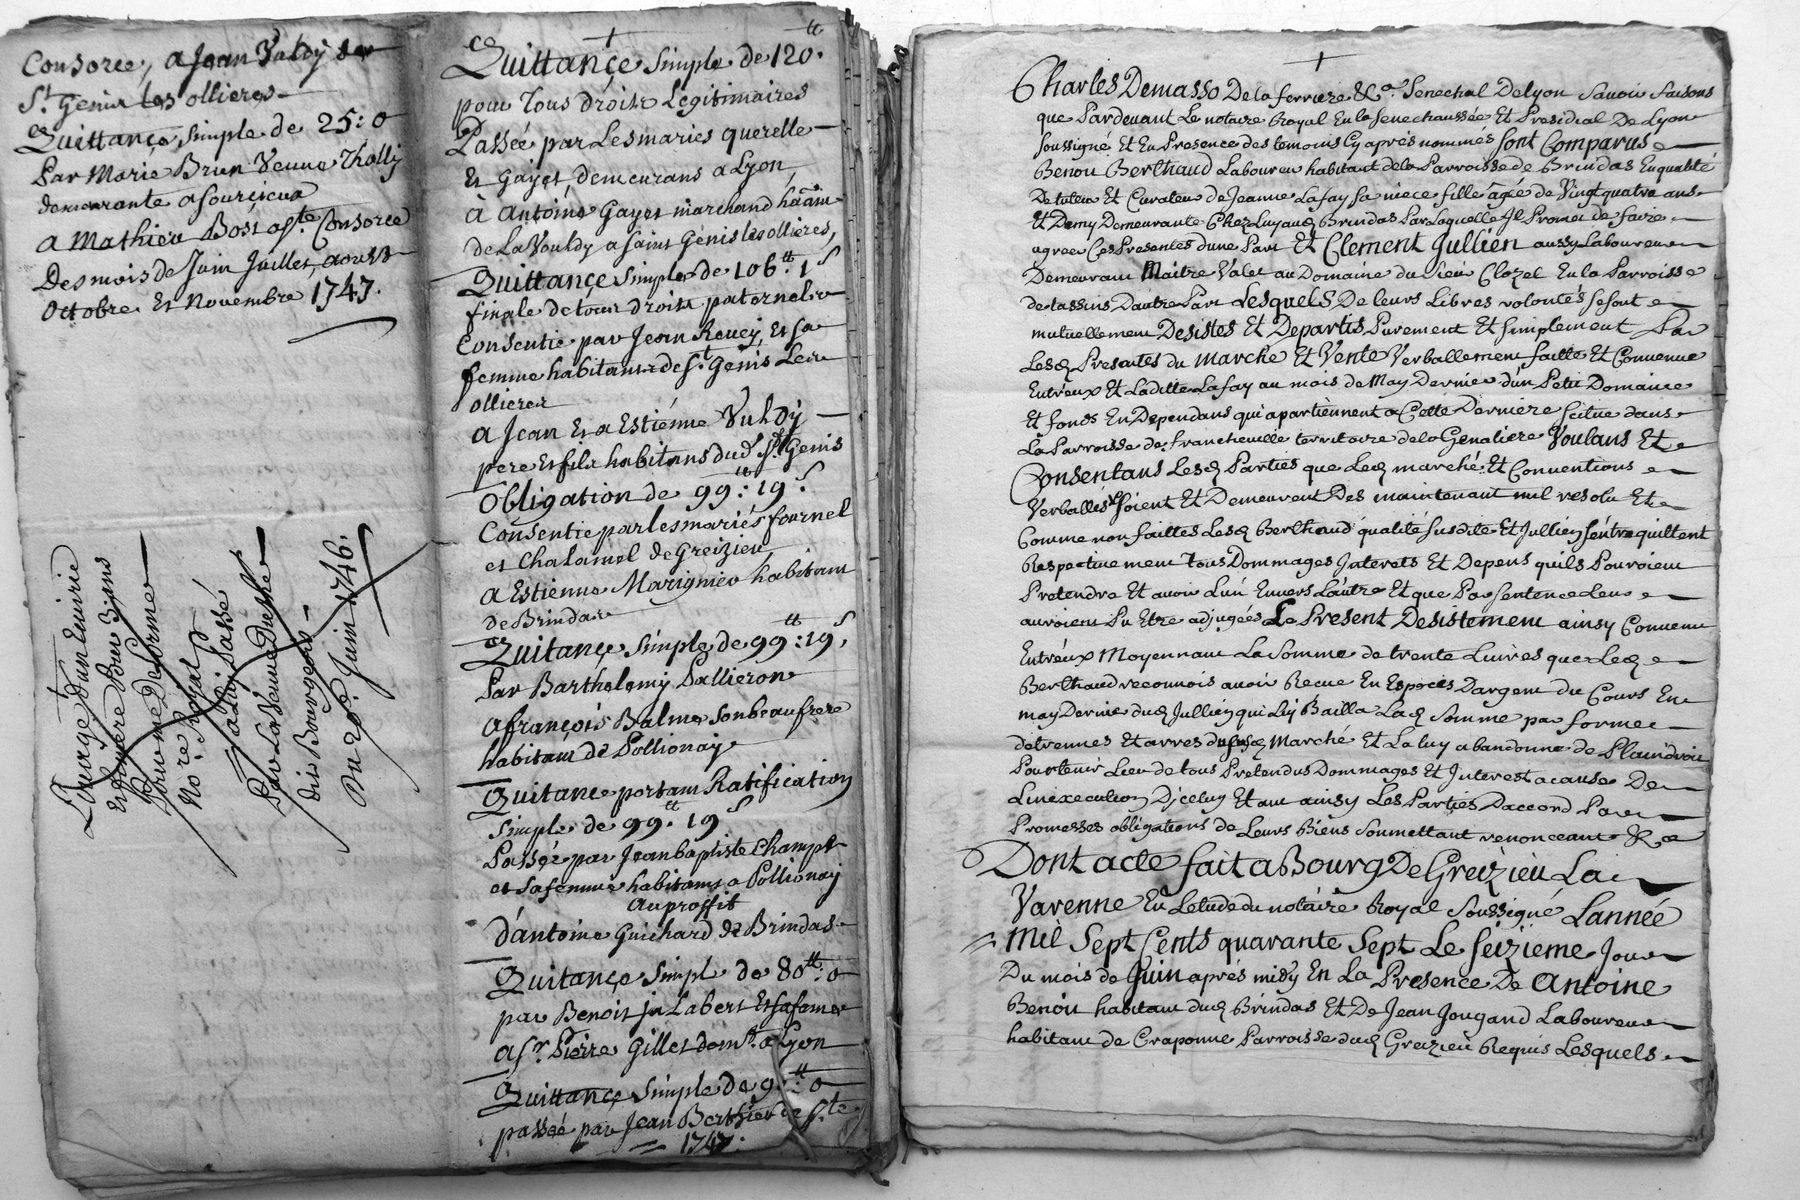 Consorce, a Jean Vuldy de
St. Genis les ollieres
Quittance, simple de 25: 0
Par Marie Brun Veuve Tholly
demeurante a Sourcieux
a Mathieu Bost de Ste. Consorce
Des mois de Juin Juillet, aoust
Octobre Et Novembre 1747.
Quittance simple de 120.tt
pour Tous droits Legitimaires
Passée par Les maries querelle
Et Gayet, demeurans a Lyon,
à Antoine Gayet marchand
de La Vouldy a Saint Génis les ollières,
Quittance simple de 106tt. 1s
finale de tous droits paternels
Consentie par Jean Revey, Et sa
femme habitans de St. Génis Les
ollieres
a Jean Et a Estiénne Vuldy
pere Et fils habitans dud. St. Genis
Obligation de 99tt: 19s.
Consentie par les mariés fournel
et Chalamel de Greizieu,
a Estienne Marignier habitant
de Brindas
Quitance simple de 99tt: 19s,
Par Barthelemy Pallieron
a françois Balme son beaufrere
habitant de Pollionay
Quitance portant Ratification
simple de 99tt. 19s
Passée par Jean baptiste Champt
et sa femme habitans a Pollionay
au proffit
d'antoine Guichard de Brindas
Quitance simple de 80tt: 0
par Benoit Labert Et sa feme
a Sr. Pierre Gillet domt. a Lyon
Quittance simple de 9 tt: 0
passée par Jean Berthier de Ste.
1747.
No.re Royal
a Luy Passé
Par La Veuve
dit Bourgeois
Du 20e. Juin 1746.
Charles Demasso De la ferriere &c.a Senechal De lyon savoir faisons
que Pardevant Le notaire Royal En la Senechaussée Et Presidial De Lyon
soussigné Et En Presence des temoins Cy aprés nommés Sont Comparus
Benoit Berthaud Laboureur habitant de la Parroisse de Brindas En qualité
De tuteur Et Curateur de Jeanne Lafay sa niece fille âgée de Vingt quatre ans
Et Demy Demeurante Chez Luy aud. Brindas Par Laquelle Il Promet de faire
agreer Ces Presentes d'une Part Et Clement Jullien aussy Laboureur
Demeurant Maitre Valet au Domaine du Sieur Clozel En la Parroisse
de tassins D'autre Part Lesquels De leurs Libres volontés se sont
mutuellement Desistes Et Departis Purement Et Simplement Par
Lesd. Presentes du Marche Et Vente Verballement faitte Et Convenue
Entr'eux Et Laditte Lafay au mois de May Dernier d'un Petit Domaine
Et fonds En Dependans qui apartiennent a Cette Derniere scitue dans
La Parroisse de francheuille territoire de la Genatiere Voulans Et
Consentans Lesd. Parties que Led. marché Et Conventions
Verballes soient Et Demeurent Des maintenant nul resolu Et
Comme non faittes Lesd. Berthaud qualité susdite Et Jullien s'entre quittent
Respectivement tous Dommages Interets Et Depens quils Pouroient
Pretendre Et avoir L'un Envers L'autre Et que Par sentence Leur
auroient Pu Etre adjugées Le Present Desistement ainsy Convenu
Entréux Moyennant La somme de trente Livres que Led.
Berthaud reconnois avoir Recue En Especes D'argent du Cours En
may Dernier dud. Jullien qui Luy Bailla Lad. somme par forme
détrennes Et arres du susd. Marché Et La luy abandonne de Plain droit
Pour tenir Lieu de tous Pretendus Dommages Et Interest a cause De
L'inexecution D'iceluy Et ont ainsy Les Parties D'accord Par
Promesses obligations de Leurs Biens soumettant renonceant &c.a
Dont acte fait a Bourg De Greizieu La
Varenne En L'etude du notaire Royal Soussigné L'année
Mil Sept Cents quarante Sept Le Seizieme Jour
Du mois de Juin aprés midy En La Presence De Antoine
Benoit habitant dud. Brindas Et De Jean Jougand Laboureur
habitant de Craponne Parroisse dud. Greizieu Requis Lesquels